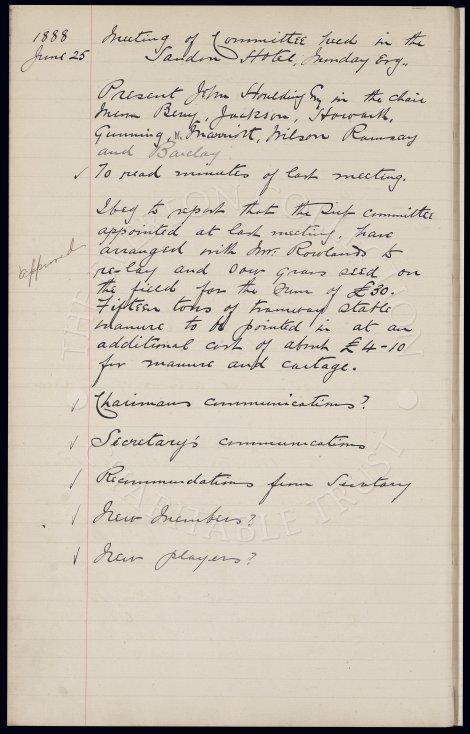 1888 Meeting of Committee held in the
June 25 Sandon Hotel, Monday Evg.,
Present John Houlding Esq in the chair
Messrs Berry, Jackson, Howarth,
Gunning, W. Marriott, Wilson Ramsay
and Barclay
✓ To read minutes of last meeting.
I beg to report that the Sub committee
appointed at last meeting, have
approved arranged with Mr. Rowlands to
re-lay and sow grass seed on
the field for the sum of £30.
Fifteen tons of tramway stable
manure to be pointed in at an
additional cost of about £4-10
for manure and cartage.
✓ Chairmans communications?
✓ Secretary's communications
✓ Recommendations from Secretary
✓ New members?
✓ New players?
THE EVERTON COLLECTION
CHARITABLE TRUST